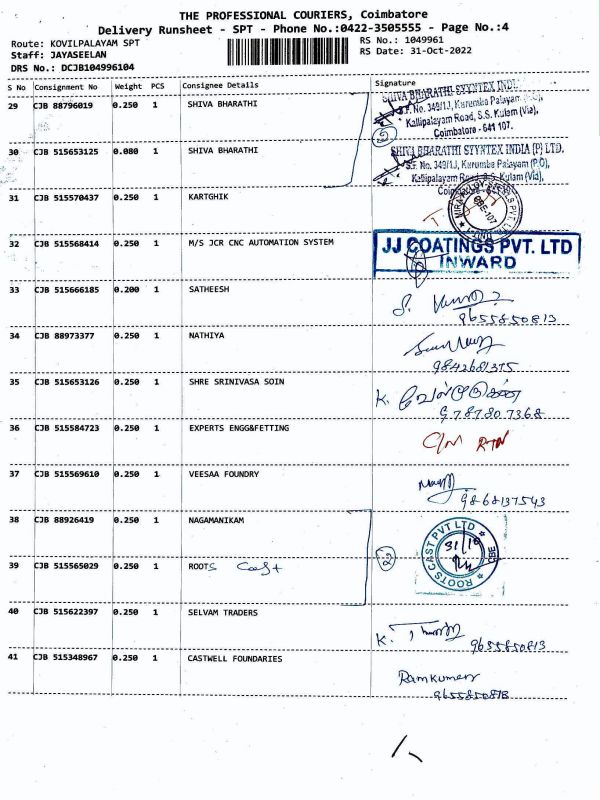 THE PROFESSIONAL COURIERS, Coimbatore
Delivery Runsheet - SPT - Phone No.:0422-3505555 - Page No.:4
Route: KOVILPALAYAM SPT
Staff: JAYASEELAN
DRS No.: DCJB104996104
RS No.: 1049961
RS Date: 31-Oct-2022
S No Consignment No Weight PCS Consignee Details Signature
29 CJB 88796019 0.250 1 SHIVA BHARATHI
SHIVA BHARATHI SYYNTEX INDI
S.F. No. 349/1J, Kurumba Palayam
Kallipalayam Road, S.S. Kulam (Via),
Coimbatore - 641 107.
2
30 CJB 515653125 0.080 1 SHIVA BHARATHI
SHIVA BHARATHI SYYNTEX INDIA (P) LTD.
S.F. No. 349/1J, Kurumba Palayam (P.O),
Kallipalayam Road, S.S. Kulam (Via),
31 CJB 515570437 0.250 1 KARTGHIK
CBE-107
32 CJB 515568414 0.250 1 M/S JCR CNC AUTOMATION SYSTEM
JJ COATINGS PVT. LTD
INWARD
33 CJB 515666185 0.200 1 SATHEESH
9655850813
34 CJB 88973377 0.250 1 NATHIYA
35 CJB 515653126 0.250 1 SHRE SRINIVASA SOIN
K.
9787807368
36 CJB 515584723 0.250 1 EXPERTS ENGG&FETTING
RTN
37 CJB 515569610 0.250 1 VEESAA FOUNDRY
9868137543
38 CJB 88926419 0.250 1 NAGAMANIKAM
ROOTS CAST PVT LTD
CBE
31/10
39 CJB 515565029 0.250 1 ROOTS Cast
40 CJB 515622397 0.250 1 SELVAM TRADERS
K.
9655850813
41 CJB 515348967 0.250 1 CASTWELL FOUNDARIES
Ramkumar
9655850813